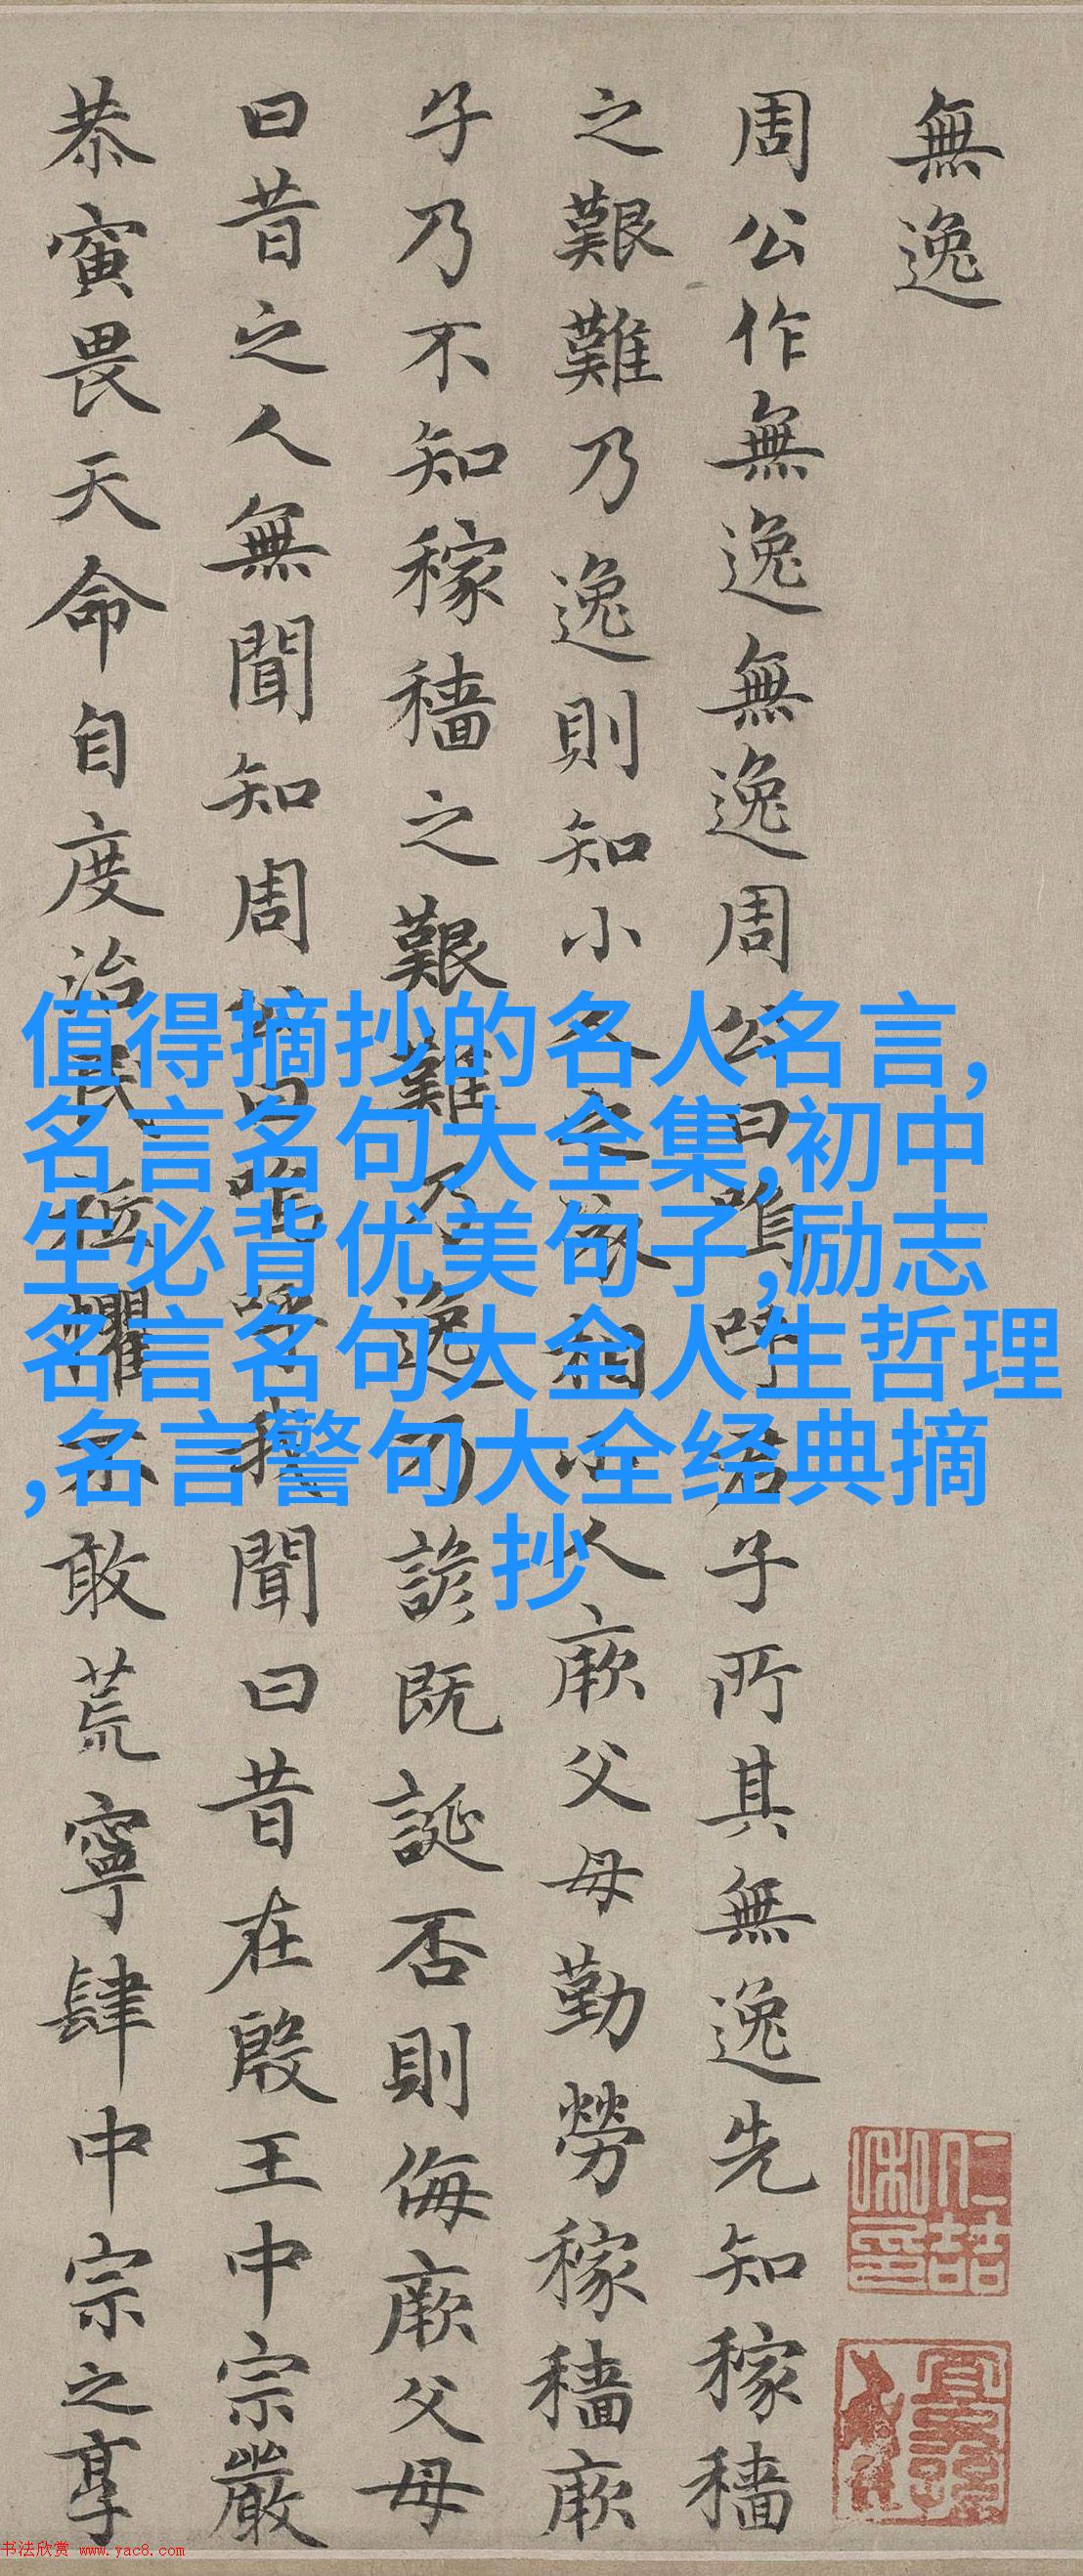 無逸
周公作無逸無逸周公曰嗚呼君子所其無逸先知稼穡
之艱難乃逸則知小人之依相小人厥父母勤勞稼穡厥
子乃不知稼穡之艱難乃逸乃諺既誕否則侮厥父母
曰昔之人無聞知周公曰嗚呼我聞曰昔在殷王中宗嚴
恭寅畏天命自度治民祗懼不敢荒寧肆中宗之享
值得摘抄的名人名言,
名言名句大全集,初中
生必背优美句子,励志
名言名句大全人生哲理
,名言警句大全经典摘
抄
书法欣赏 www.yac8.com